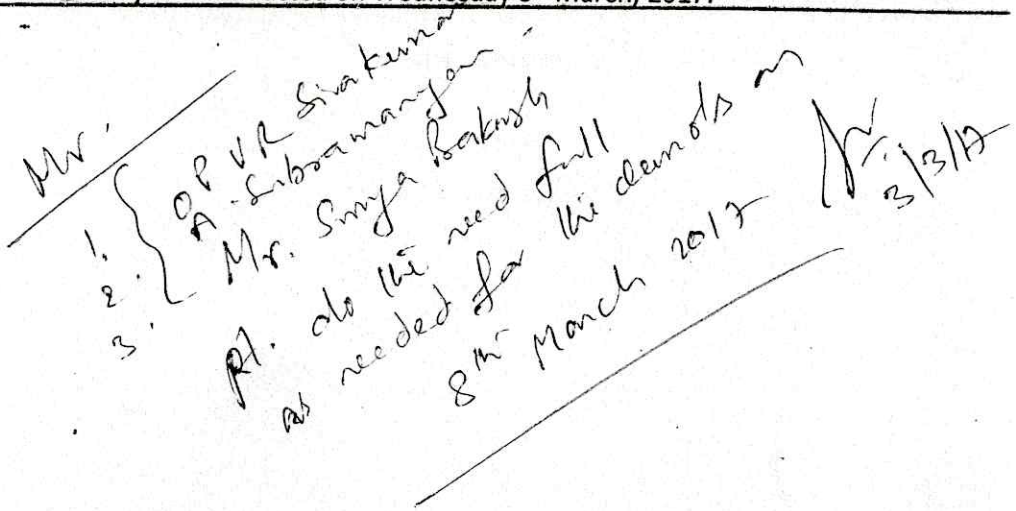 on Wednesday 8th March, 2017.
Mr.
1. OPVR Sivakumar
2. A. Subramanyam
3. Mr. Surya Prakash
pl. do the need full
as needed for the demo's on
8th March 2017
3/3/17